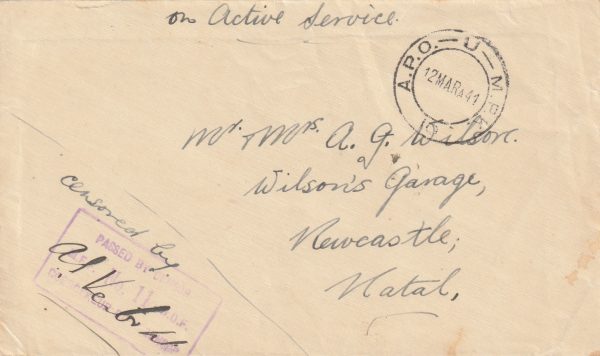 on Active Service.
A.P.O. — U — M.P.K. 15
12 MAR 41
Mr. & Mrs. A. G. Wilson.
Wilson's Garage,
Newcastle,
Natal,
censored by
PASSED BY
11